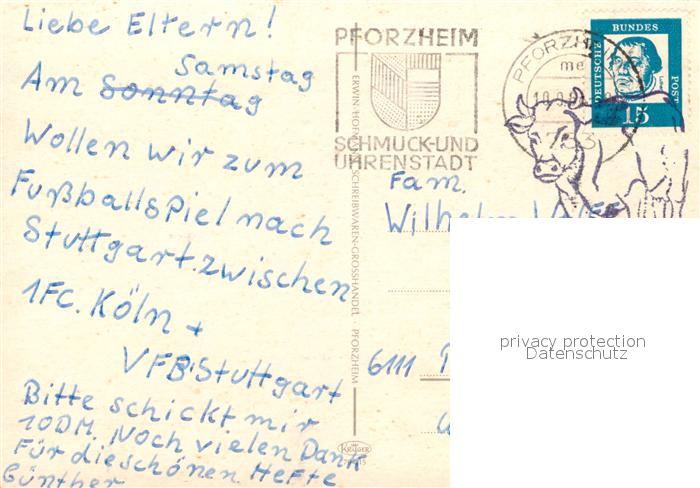 Liebe Eltern!
Samstag
Am Sonntag
Wollen wir zum
Fußballspiel nach
Stuttgart.zwischen
1FC. Köln +
VFB.Stuttgart
Bitte schickt mir
10DM. Noch vielen Dank
Für die schönen Hefte
Günther
PFORZHEIM
SCHMUCK-UND
UHRENSTADT
PFORZH
me
753
DEUTSCHE
BUNDES
POST
15
Fam.
Wilhelm
6111
ERWIN HOF SCHREIBWAREN-GROSSHANDEL PFORZHEIM
KRÜGER
privacy protection
Datenschutz